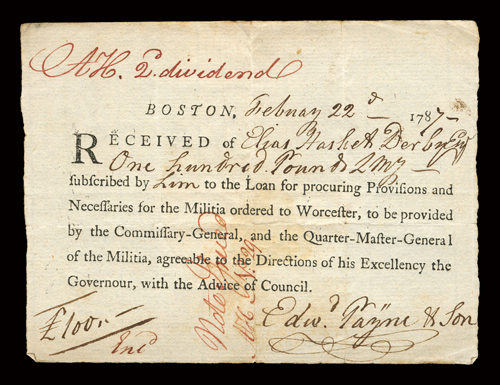 AH. 2. dividend
BOSTON, Febuay 22d 1787
RECEIVED of Elias Hasket Derby Esqr
One hundred Pounds LMy
subſcribed by him to the Loan for procuring Proviſions and
Neceſſaries for the Militia ordered to Worceſter, to be provided
by the Commiſſary-General, and the Quarter-Maſter-General
of the Militia, agreeable to the Directions of his Excellency the
Governour, with the Advice of Council.
£100..
Edwd Payne & Son
Note Issued